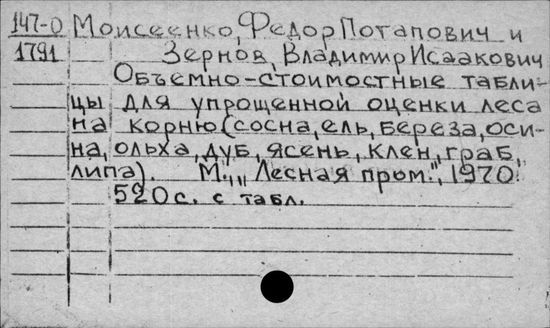 147-0 Моисеенко, Федор Потапович и
1791 Зернов, Владимир Исаакович
Объемно-стоимостные табли-
цы для упрощенной оценки леса
на корню (сосна, ель, береза, оси-
на, ольха, дуб, ясень, клен, граб,
липа). М., „Лесная пром.", 1970.
520с. с табл.